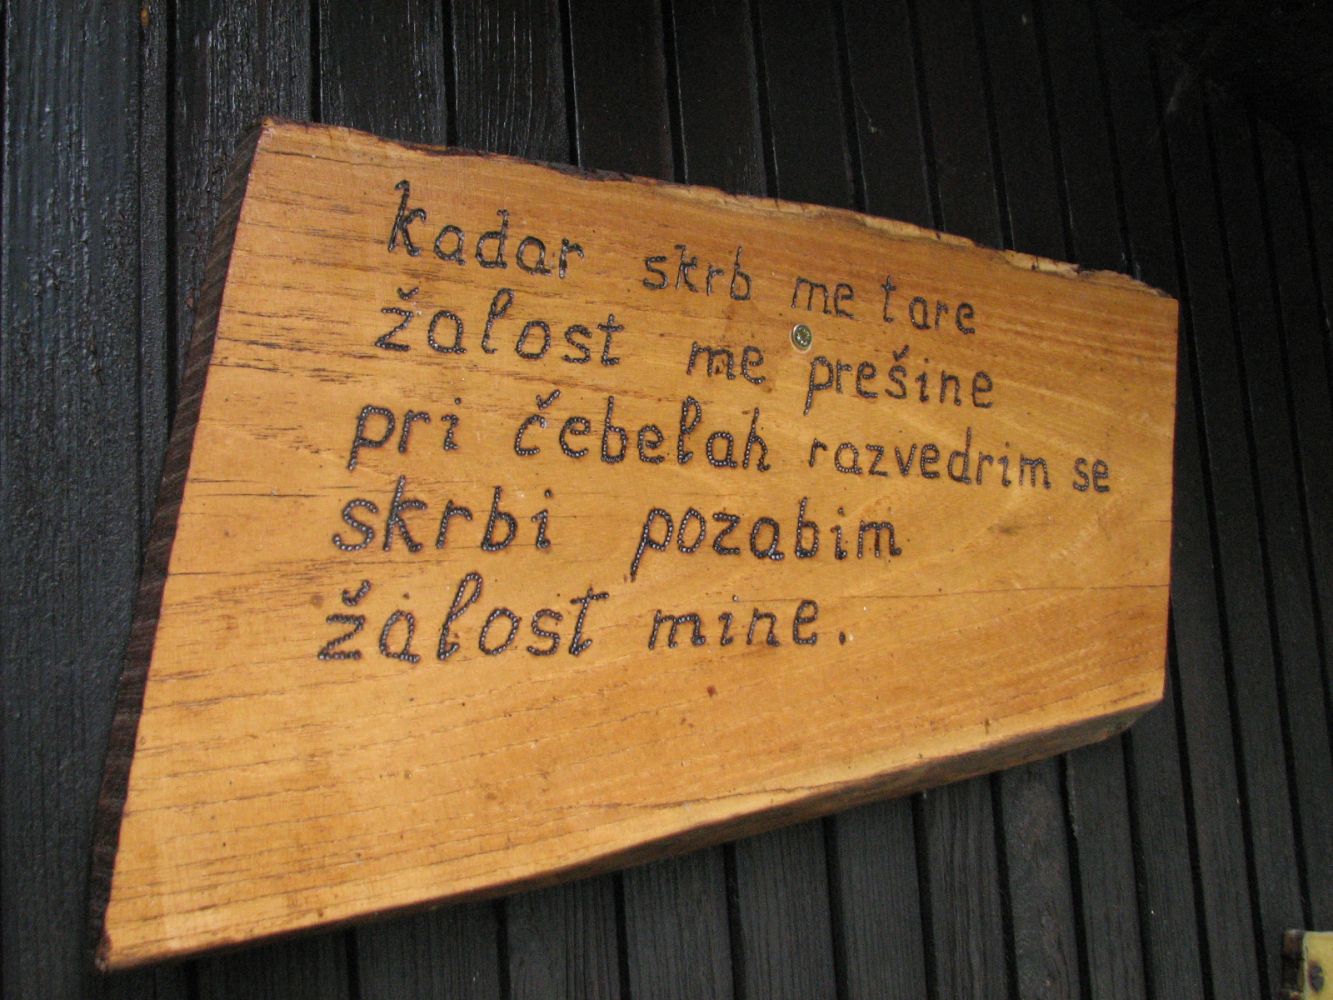 kadar skrb me tare
žalost me prešine
pri čebelah razvedrim se
skrbi pozabim
žalost mine.